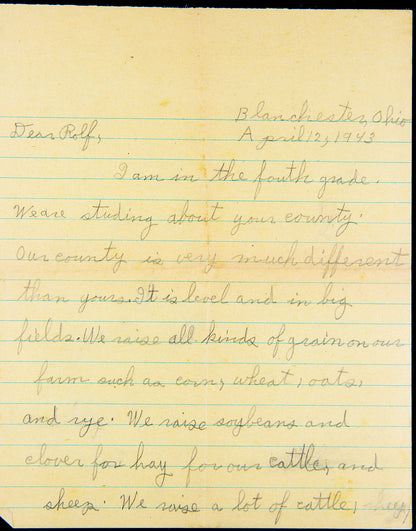 Blanchester, Ohio
April 12, 1943
Dear Rolf,
I am in the fouth grade.
We are studing about your county.
Our county is very much different
than yours. It is level and in big
fields. We raise all kinds of grain on our
farm such as corn, wheat, oats,
and rye. We raise soybeans and
clover for hay for our cattle, and
sheep. We raise a lot of cattle, sheep,